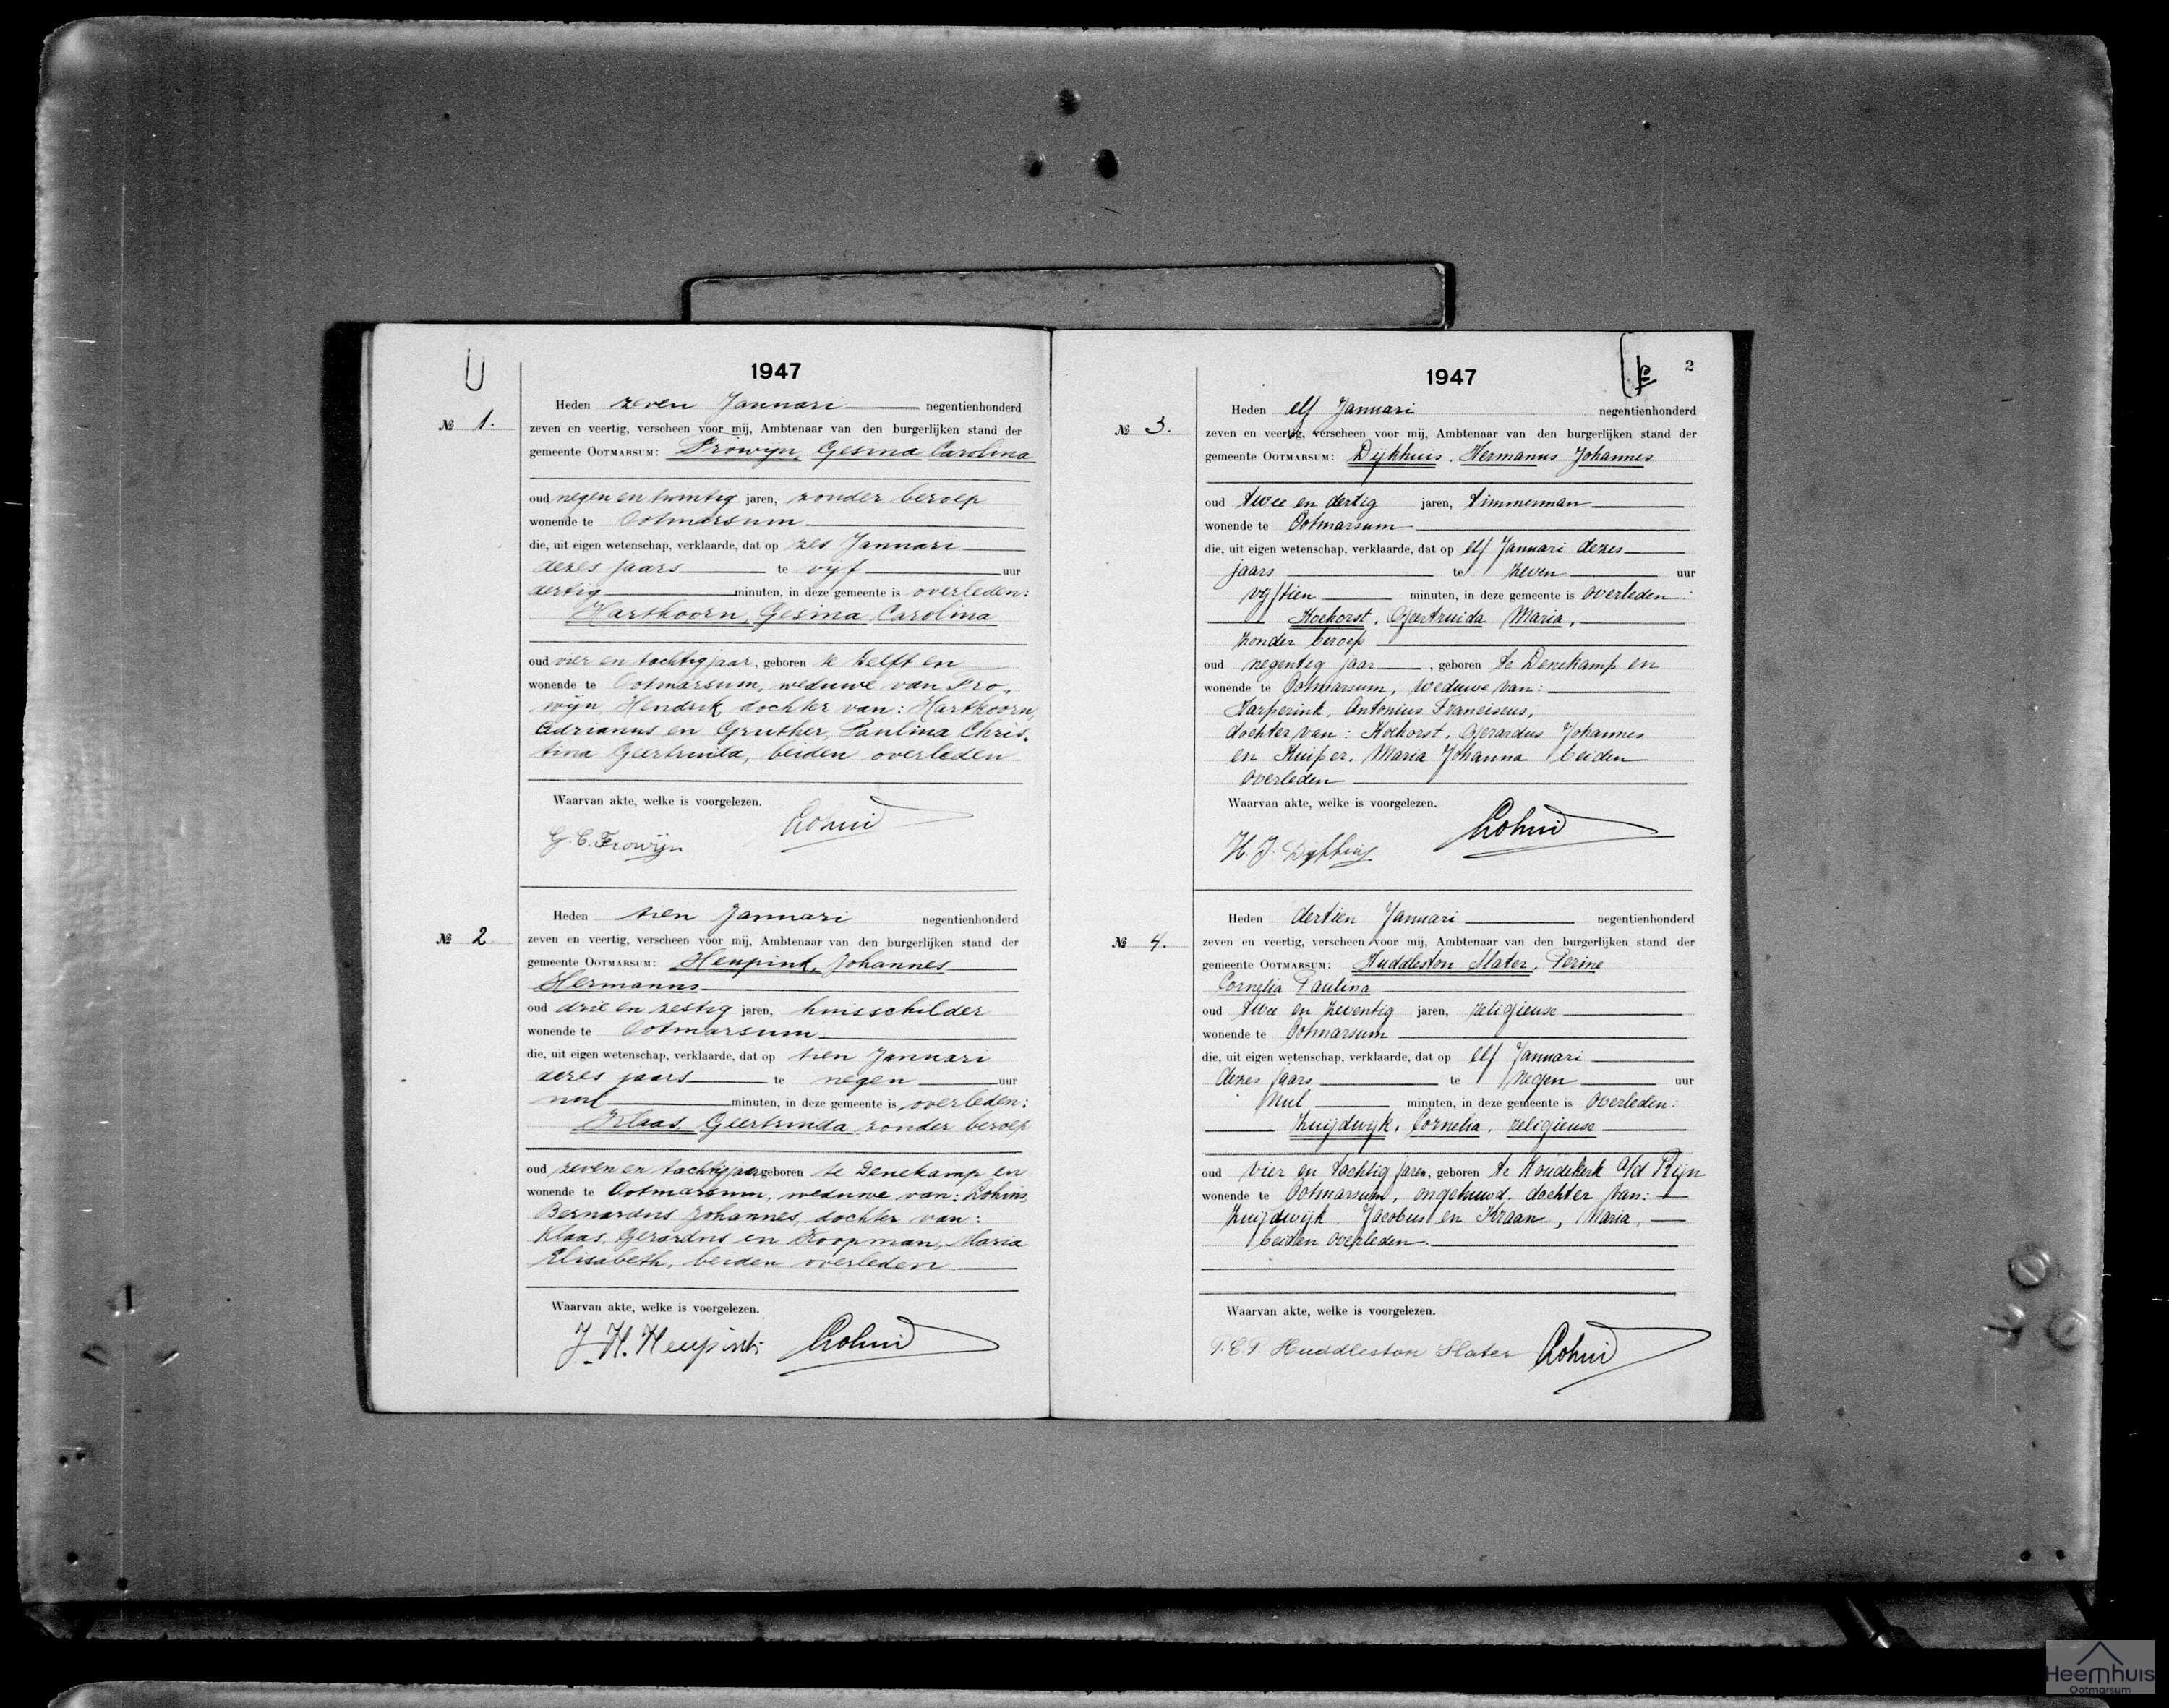 1947
Nº 1.
Heden zeven Januari negentienhonderd
zeven en veertig, verscheen voor mij, Ambtenaar van den burgerlijken stand der
gemeente OOTMARSUM: Frowijn, Gesina Carolina
oud negen en twintig jaren, zonder beroep
wonende te Ootmarsum
die, uit eigen wetenschap, verklaarde, dat op zes Januari
dezes jaars te vijf uur
dertig minuten, in deze gemeente is overleden:
Harthoorn, Gesina Carolina
oud vier en tachtig jaar, geboren te Delft en
wonende te Ootmarsum, weduwe van Fro-
wijn Hendrik dochter van: Harthoorn,
Adrianus en Gruther, Paulina Chris-
tina Geertruida, beiden overleden
Waarvan akte, welke is voorgelezen.
G. C. Frowijn
Nº 2
Heden tien Januari negentienhonderd
zeven en veertig, verscheen voor mij, Ambtenaar van den burgerlijken stand der
gemeente OOTMARSUM: Heupink, Johannes
Hermannus
oud drie en zestig jaren, huisschilder
wonende te Ootmarsum
die, uit eigen wetenschap, verklaarde, dat op tien Januari
dezes jaars te negen uur
nul minuten, in deze gemeente is overleden:
Klaas, Geertruida zonder beroep
oud zeven en tachtig jaar geboren te Denekamp en
wonende te Ootmarsum, weduwe van:
Bernardus Johannes, dochter van:
Klaas, Gerardus en Koopman, Maria
Elisabeth, beiden overleden.
Waarvan akte, welke is voorgelezen.
J. H. Heupink
2
1947
Nº 3.
Heden elf Januari negentienhonderd
zeven en veertig, verscheen voor mij, Ambtenaar van den burgerlijken stand der
gemeente OOTMARSUM: Dijkhuis, Hermanus Johannes
oud twee en dertig jaren, timmerman
wonende te Ootmarsum
die, uit eigen wetenschap, verklaarde, dat op elf Januari dezes
jaars te zeven uur
vijftien minuten, in deze gemeente is overleden:
Koehorst, Geertruida Maria,
zonder beroep
oud negentig jaar, geboren te Denekamp en
wonende te Ootmarsum, weduwe van:
Harperink, Antonius Franciscus,
dochter van: Koehorst, Gerardus Johannes
en Kuiper, Maria Johanna beiden
overleden
Waarvan akte, welke is voorgelezen.
H. J. Dijkhuis
Nº 4.
Heden dertien Januari negentienhonderd
zeven en veertig, verscheen voor mij, Ambtenaar van den burgerlijken stand der
gemeente OOTMARSUM: Huddleston Slater, Perine
Cornelia Paulina
oud twee en zeventig jaren, religieuse
wonende te Ootmarsum
die, uit eigen wetenschap, verklaarde, dat op elf Januari
dezes jaars te negen uur
nul minuten, in deze gemeente is overleden:
Zuijdwijk, Cornelia, religieuse
oud vier en tachtig jaren, geboren te Koudekerk a/d Rijn
wonende te Ootmarsum, ongehuwd, dochter van:
Zuijdwijk, Jacobus en Kraan, Maria,
beiden overleden.
Waarvan akte, welke is voorgelezen.
P. C. P. Huddleston Slater
Heemhuis
Ootmarsum